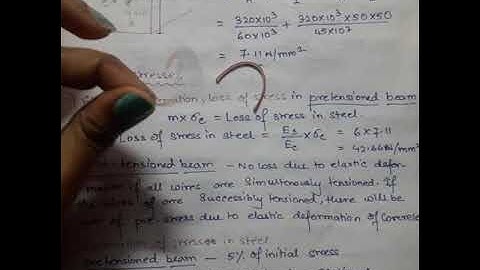 = 320×10³ / 60×10³ + 320×10³×50×50 / 45×10⁷
= 7.11 N/mm²
loss of stress in pretensioned beam
m×σc = Loss of stress in steel.
Loss of stress in steel = Es/Ec × σc = 6×7.11
= 42.66 N/mm²
tensioned beam - No loss due to elastic defor-
if all wires are simultenously tensioned. If
of are successibly tensioned, there will be
of pre-stress due to elastic deformation of concrete
of stress in steel
pretensioned beam - 5% of initial stress